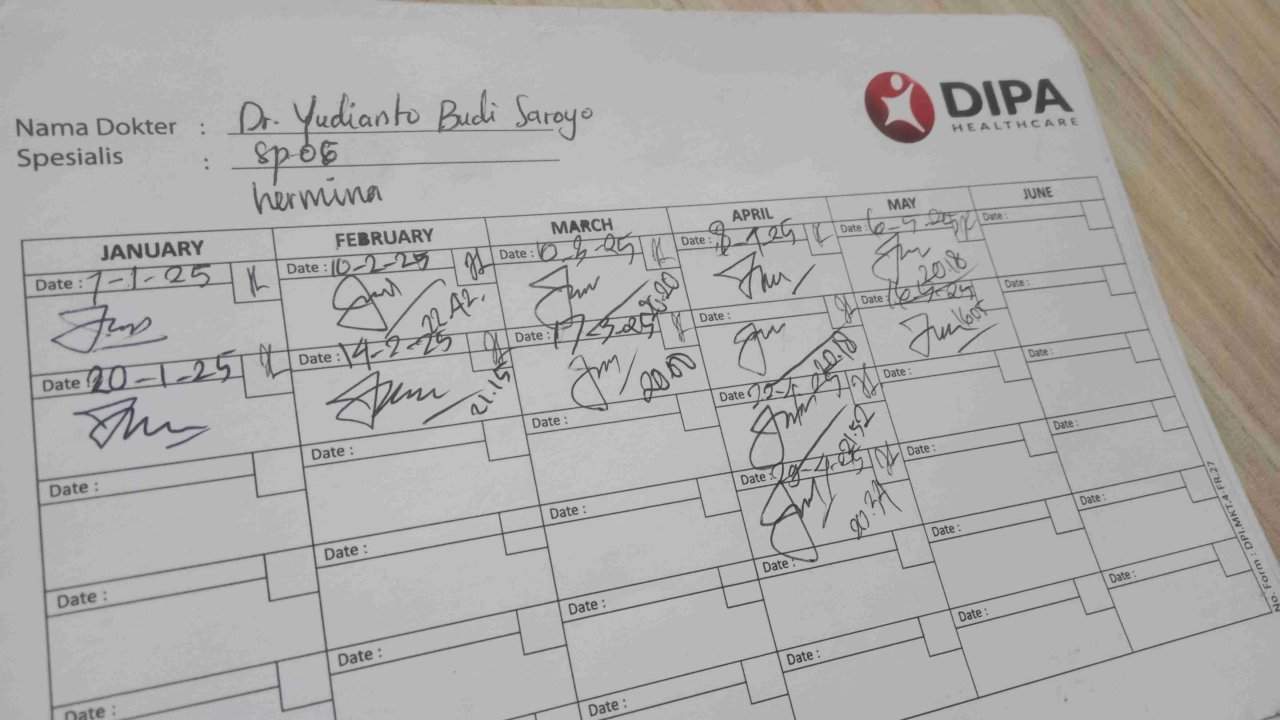 DIPA
HEALTHCARE
Nama Dokter : Dr. Yudianto Budi Saroyo
Spesialis : SpOG
hermina
JANUARY FEBRUARY MARCH APRIL MAY JUNE
Date : 7-1-25 Date : 10-2-25 Date : 10-3-25 Date : 8-4-25 Date : 6-5-25 Date :
20.20 20.18
Date : 20-1-25 Date : 14-2-25 Date : 17-3-25 Date : Date : Date :
21.15 20.00 20.18
Date : Date : Date : Date : 22-4-25 Date : Date :
21.52
Date : Date : Date : Date : 28-4-25 Date : Date :
Date : Date : Date : Date : Date : Date :
Date : Date : Date : Date :
No. Form : DPI.MKT.4-FR.27